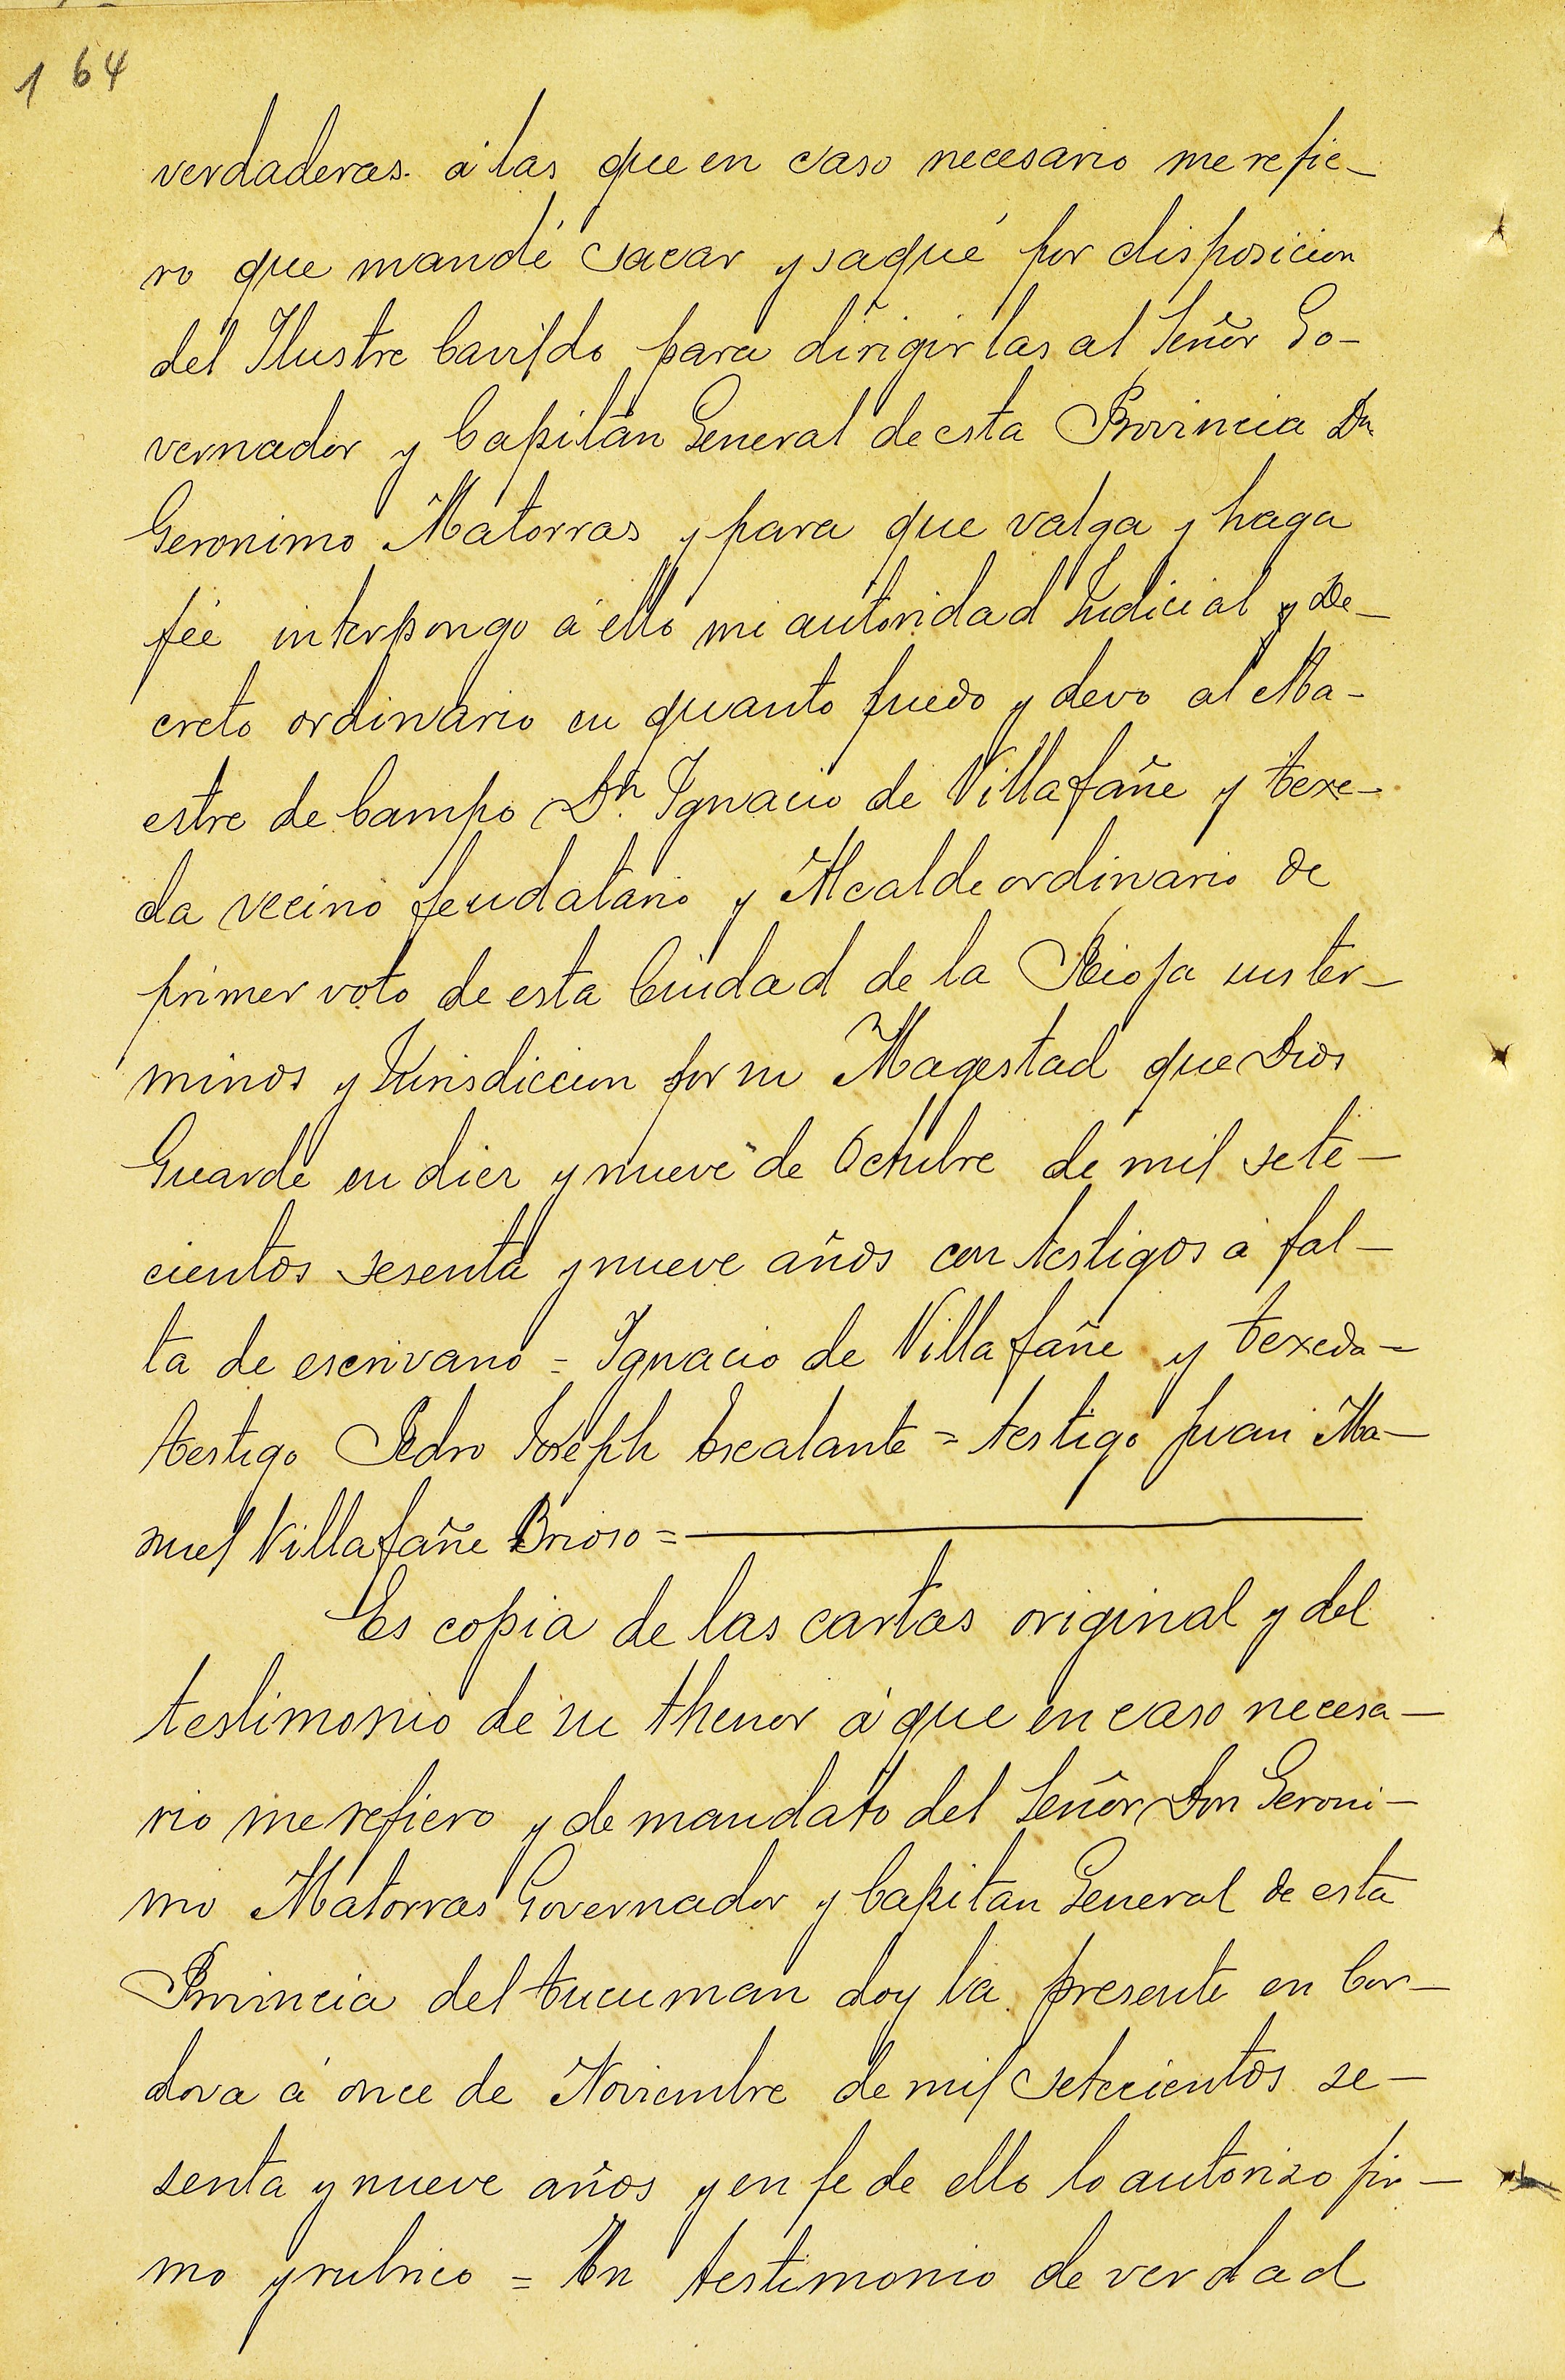 164
verdaderas. á las que en caso necesario me refie-
ro que mandé sacar y saqué por disposicion
del Ilustre Cavildo para dirigirlas al Señor Go-
vernador y Capitán General de esta Provincia Dn
Geronimo Matorras y para que valga y haga
fée interpongo á ello mi autoridad Judicial y De-
creto ordinario en quanto puedo y devo al Ma-
estre de Campo Dn. Ignacio de Villafañe y texe-
da vecino feudatario y Alcalde ordinario de
primer voto de esta Ciudad de la Rioja sus ter-
minos y Jurisdiccion por su Magestad que Dios
Guarde en diez y nueve de Octubre de mil sete-
cientos sesenta y nueve años con testigos á fal-
ta de escrivano = Ignacio de Villafañe y texeda-
testigo Pedro Joseph Escalante = testigo Juan Ma-
nuel Villafañe Brioso =
Es copia de las cartas original y del
testimonio de su thenor á que en caso necesa-
rio me refiero y de mandato del Señor Don Geroni-
mo Matorras Governador y Capitan General de esta
Provincia del tucuman doy la presente en Cor-
dova á once de Noviembre de mil setecientos se-
senta y nueve años y en fe de ello lo autorizo fir-
mo y rubrico = En testimonio de verdad